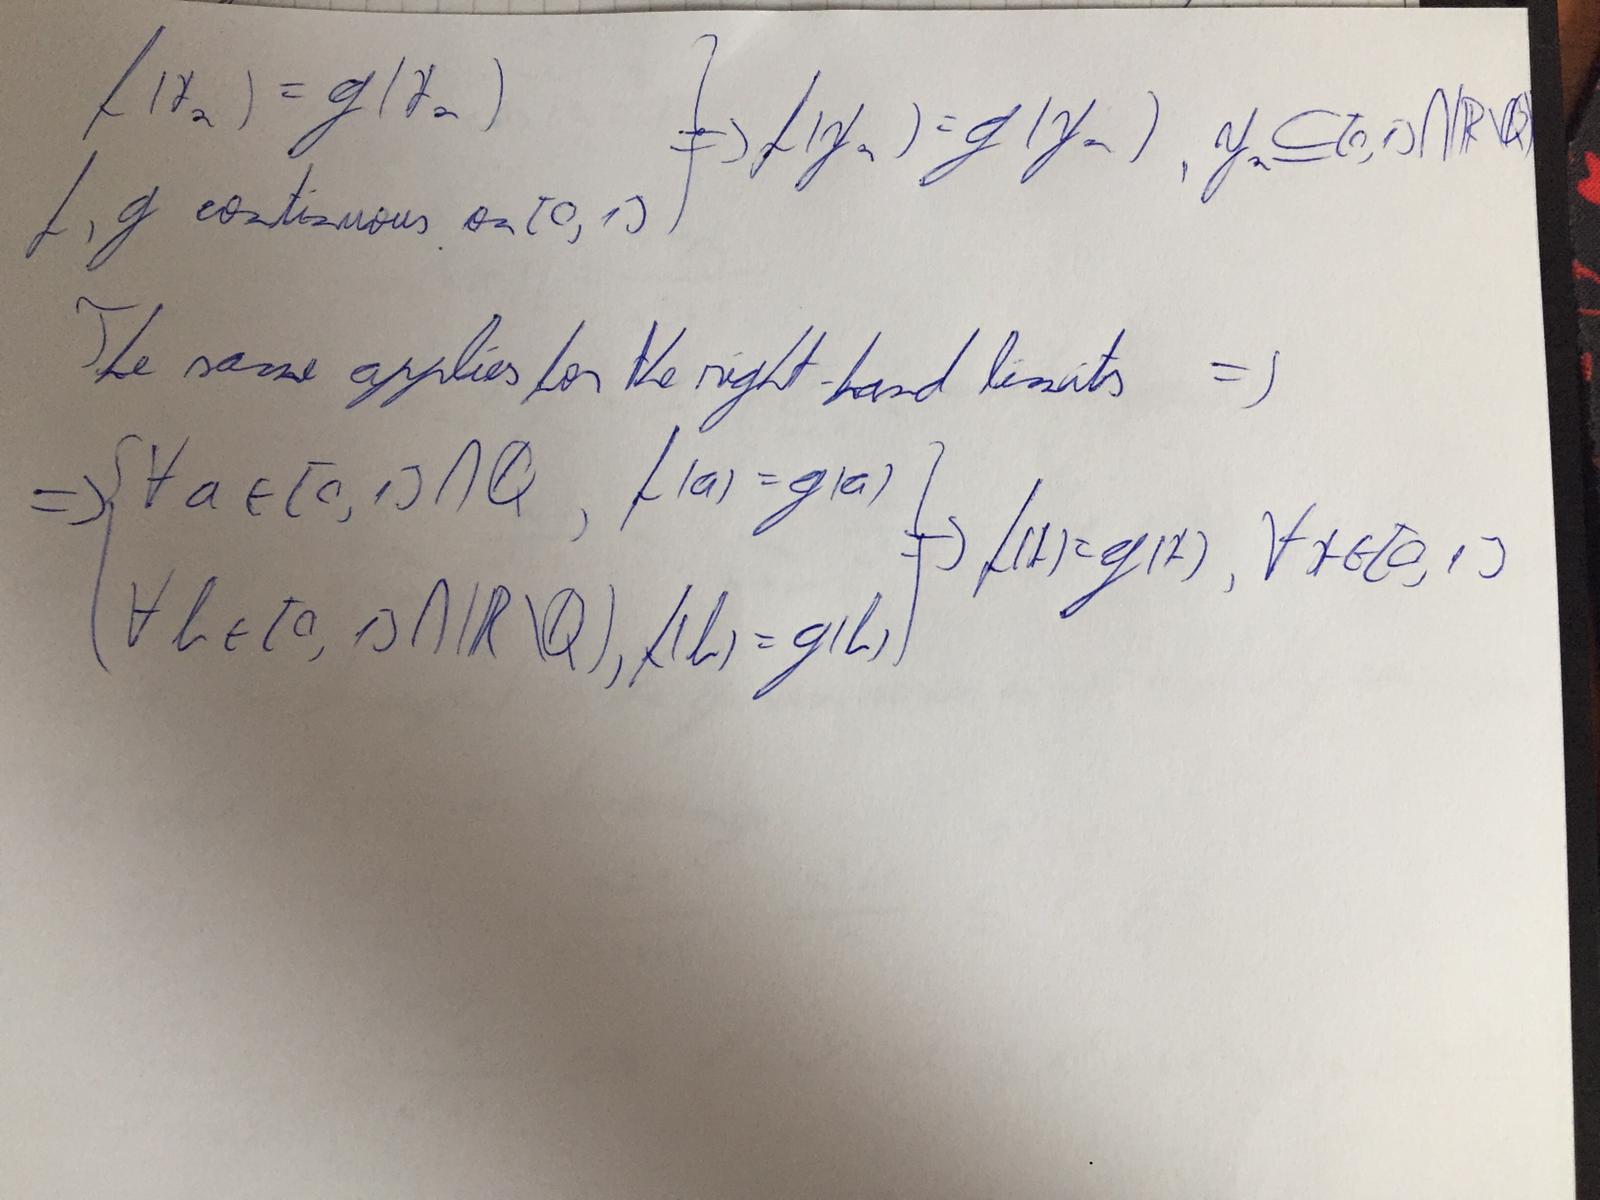 f(xₙ) = g(xₙ)
f, g continuous on [0, 1]
} => f(yₙ) = g(yₙ), yₙ ⊆ [0, 1] ∩ (ℝ\ℚ)
The same applies for the right-hand limits =>
=> { ∀ a ∈ [0, 1] ∩ ℚ, f(a) = g(a)
∀ b ∈ [0, 1] ∩ (ℝ\ℚ), f(b) = g(b)
} => f(x) = g(x), ∀ x ∈ [0, 1]